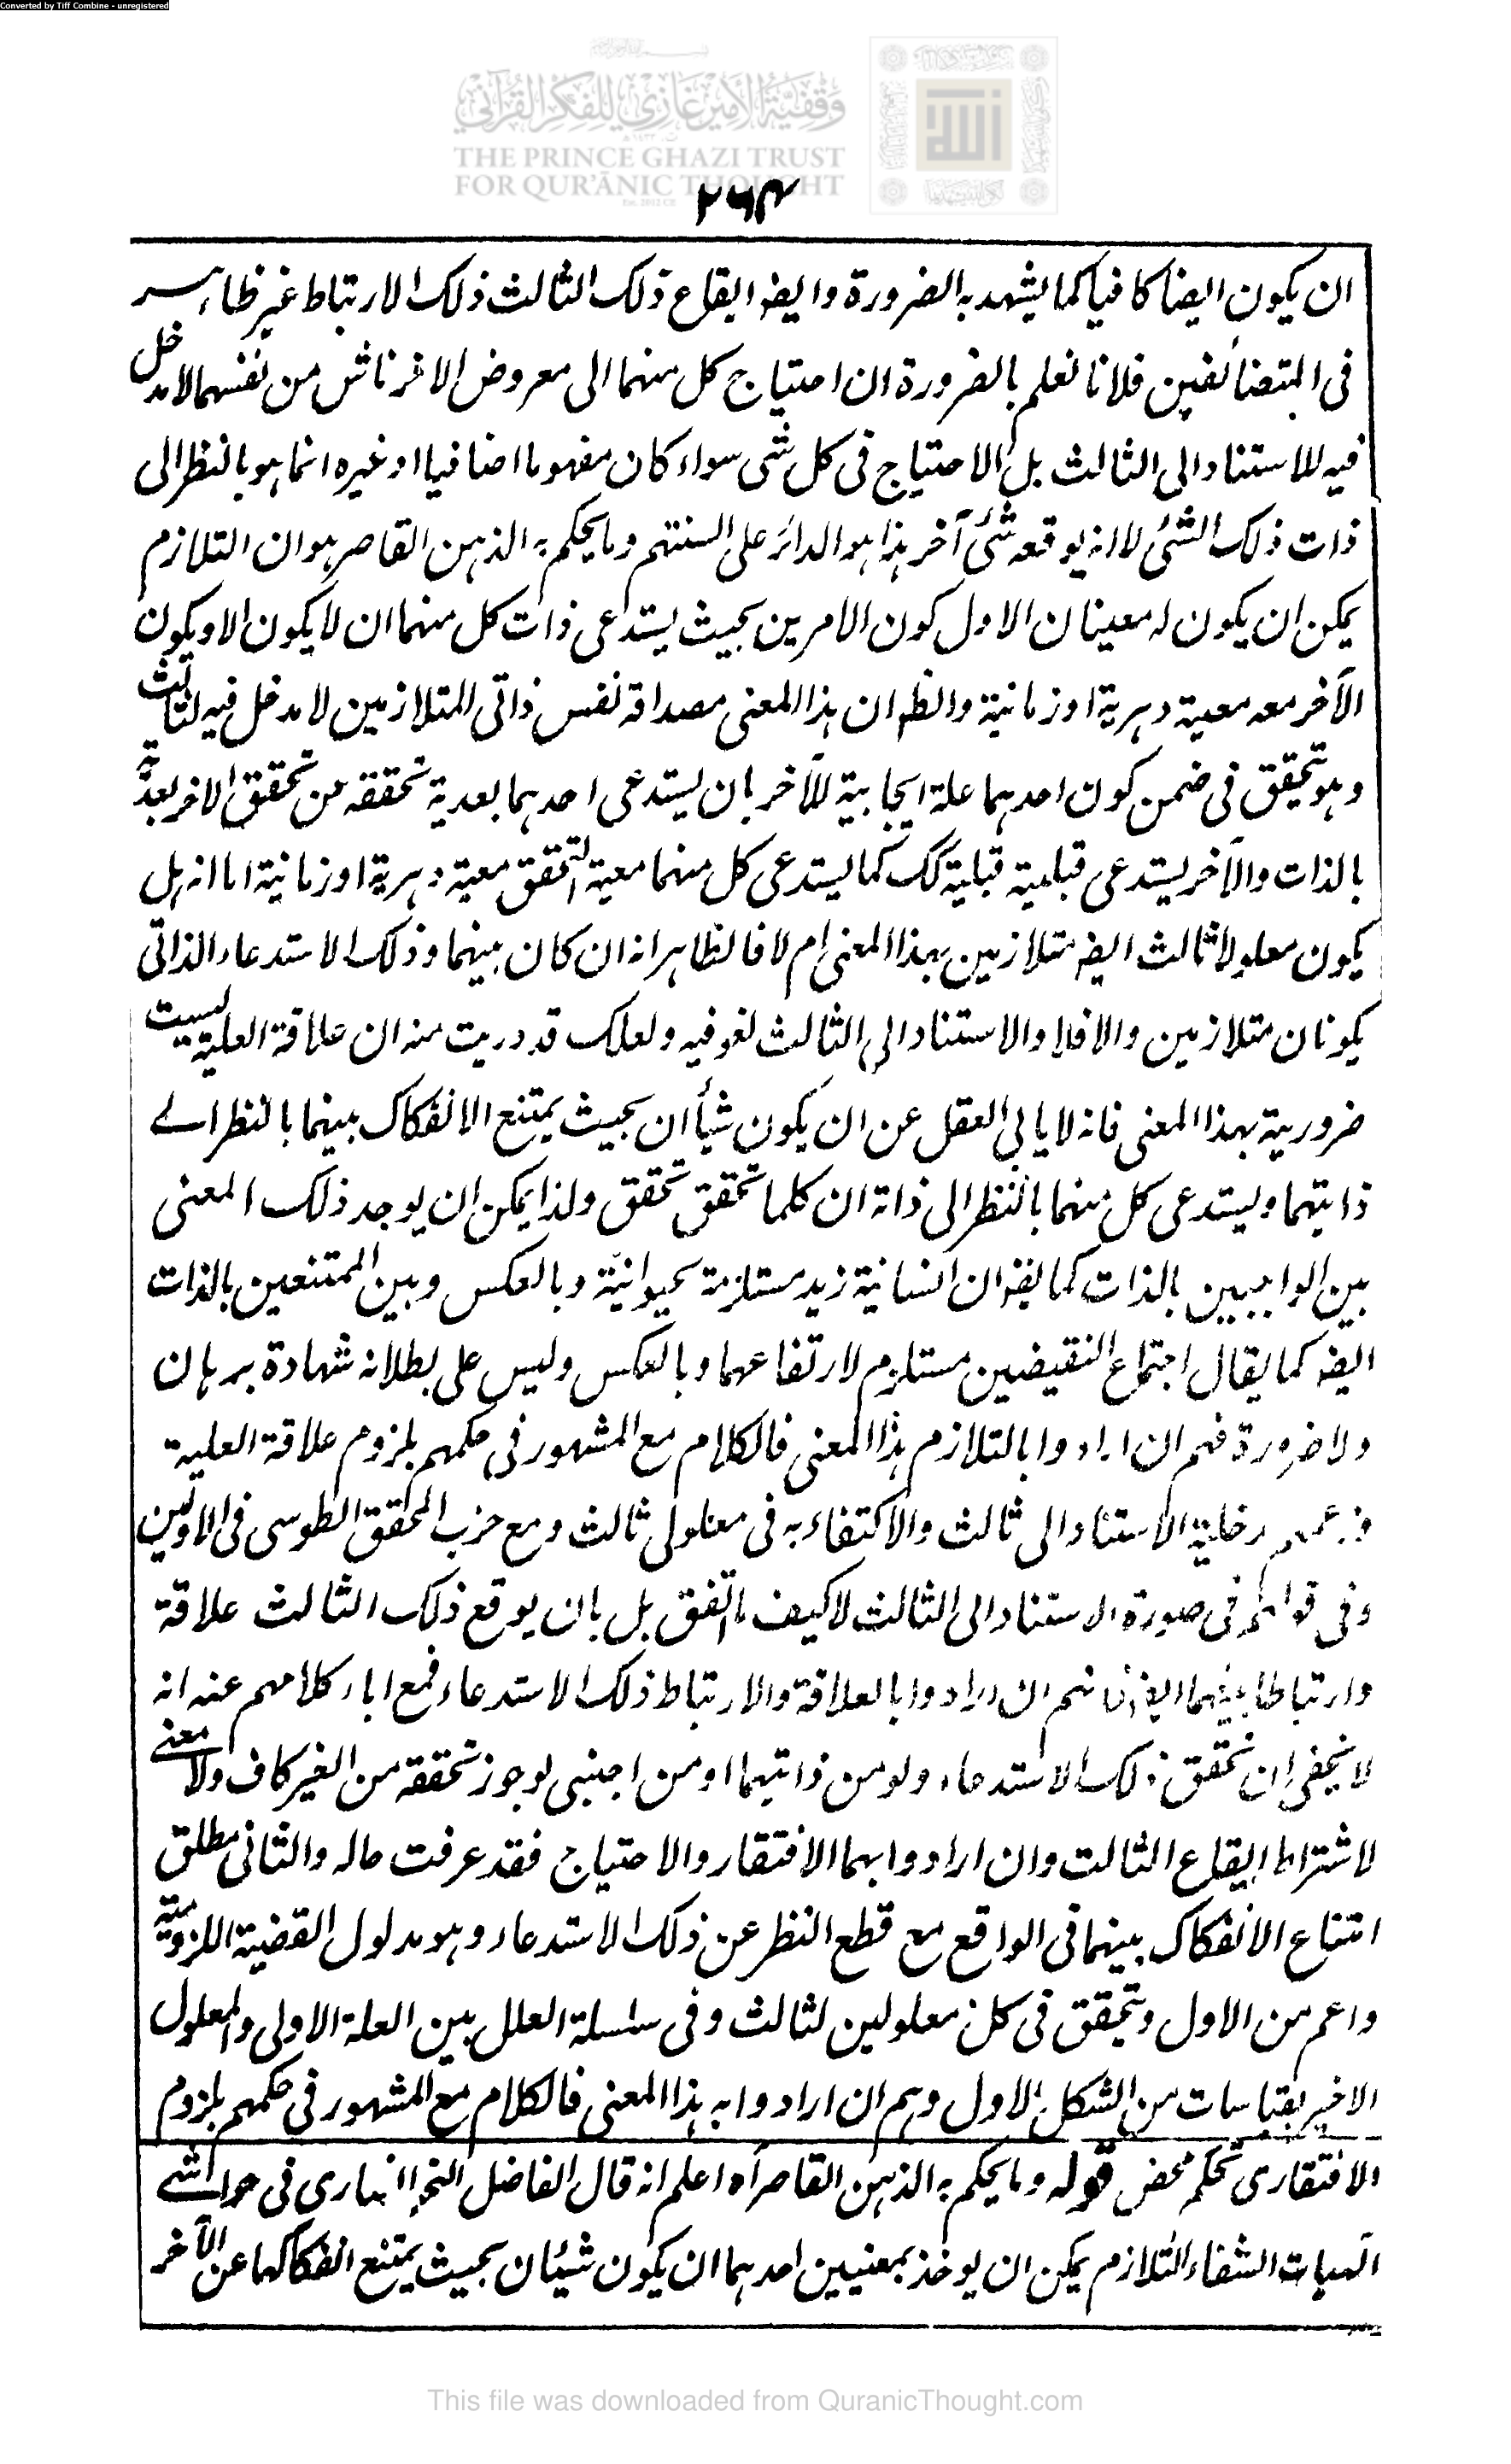 Converted by Tiff Combine - unregistered
وقفية الأمير غازي للفكر القرآني
THE PRINCE GHAZI TRUST
FOR QUR'ĀNIC THOUGHT
٢٦٤
ان يكون ايضا كافيا كما يشهد به الضرورة وايضا ايقاع ذلك الثالث ذلك الارتباط غير ظاهر
فى المتضائفين فلانا نعلم بالضرورة ان احتياج كل منهما الى معروض الاخر ناش من نفسهما لا مدخل
فيه للاستناد الى الثالث بل الاحتياج فى كل شى سواء كان مفهوما اضافيا او غيره انما هو بالنظر الى
ذات ذلك الشئ لا انه يوقعه شئ آخر هذا هو الدائر على السنتهم وما يحكم به الذهن القاصر هو ان التلازم
يمكن ان يكون له معنيان الاول كون الامرين بحيث يستدعى ذات كل منهما ان لا يكون الا ويكون
الآخر معه معية دهرية او زمانية والظ ان هذا المعنى مصداقه نفس ذاتى المتلازمين لا مدخل فيه لثالث
وهو يتحقق فى ضمن كون احدهما علة ايجابية للآخر بان يستدعى احدهما بعدية تحققه عن تحقق الاخر بعدية
بالذات والآخر يستدعى قبلية قبلية كك كما يستدعى كل منهما معية التحقق معية دهرية او زمانية اما انه هل
يكون معلولا ثالث ايض متلازمين بهذا المعنى ام لا فالظاهر انه ان كان بينهما وذلك الاستدعاء الذاتى
يكونان متلازمين والا فلا والاستناد الى الثالث لغو فيه ولعلك قد دريت منه ان علاقة العلية ليست
ضرورية بهذا المعنى فانه لا يابى العقل عن ان يكون شيأان بحيث يمتنع الانفكاك بينهما بالنظر الى
ذاتيهما ويستدعى كل منهما بالنظر الى ذاته ان كلما تحقق تحقق ولذا يمكن ان يوجد ذلك المعنى
بين الواجبين بالذات كما يق ان انسانية زيد مستلزمة لحيوانيته وبالعكس وبين الممتنعين بالذات
ايض كما يقال اجتماع النقيضين مستلزم لارتفاعهما وبالعكس وليس على بطلانه شهادة برهان
ولا ضرورة فهم ان ارادوا بالتلازم هذا المعنى فالكلام مع المشهور فى حكمهم بلزوم علاقة العلية
مدخلية الاستناد الى ثالث والاكتفاء به فى معلولى ثالث ومع حزب المحقق الطوسى فى الاولين
وفى قولهم فى صورة الاستناد الى الثالث لا كيف ما اتفق بل بان يوقع ذلك الثالث علاقة
وارتباطا بينهما ايض فانهم ان ارادوا بالعلاقة والارتباط ذلك الاستدعاء فمع اباء كلامهم عنه انه
لا يخفى ان تحقق ذلك الاستدعاء ولو من ذاتيهما او من اجنبى لو جوز تحققه من الغير كاف ولا معنى
لاشتراط ايقاع الثالث وان ارادوا بهما الافتقار والاحتياج فقد عرفت حاله والثانى مطلق
امتناع الانفكاك بينهما فى الواقع مع قطع النظر عن ذلك الاستدعاء وهو مدلول القضية اللزومية
واعم من الاول ويتحقق فى كل معلولين لثالث وفى سلسلة العلل بين العلة الاولى والمعلول
الاخير بقياسات من الشكل الاول وهم ان ارادوا به هذا المعنى فالكلام مع المشهور فى حكمهم بلزوم
الافتقارى تحكم محض قوله وما يحكم به الذهن القاصر اه اعلم انه قال الفاضل الخوانسارى فى حواشى
الهيات الشفاء التلازم يمكن ان يوخذ بمعنيين احدهما ان يكون شيئان بحيث يمتنع انفكاكهما عن الآخر
This file was downloaded from QuranicThought.com